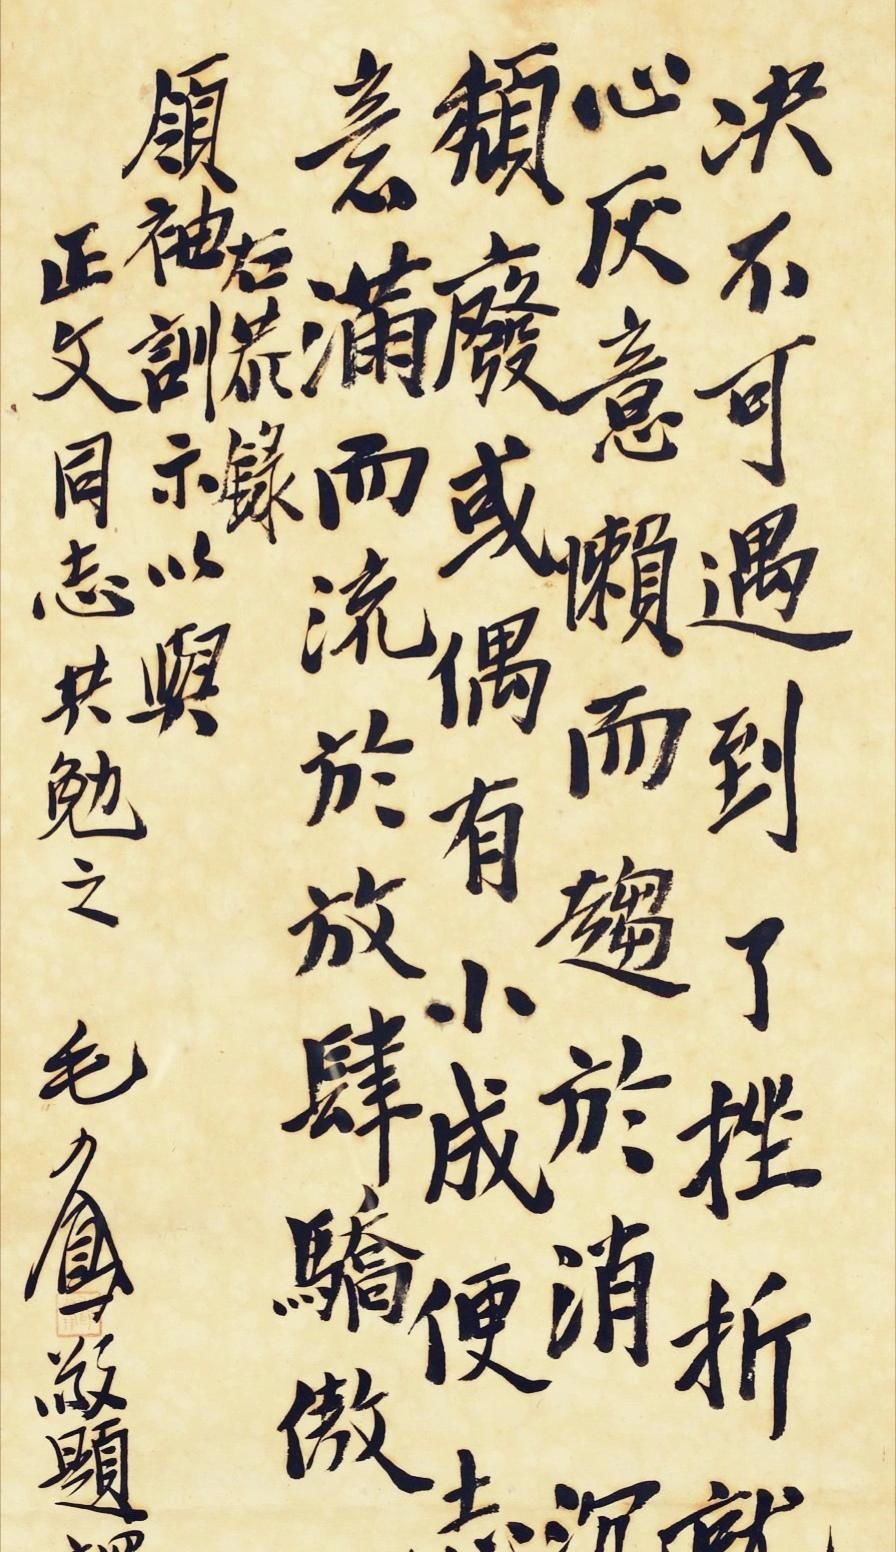 决不可遇到了挫折就
心灰意懶而趨於消沉
頽廢或偶有小成便志
意滿而流於放肆驕傲
右恭錄
領袖訓示以與
正文同志共勉之 毛人鳳敬題